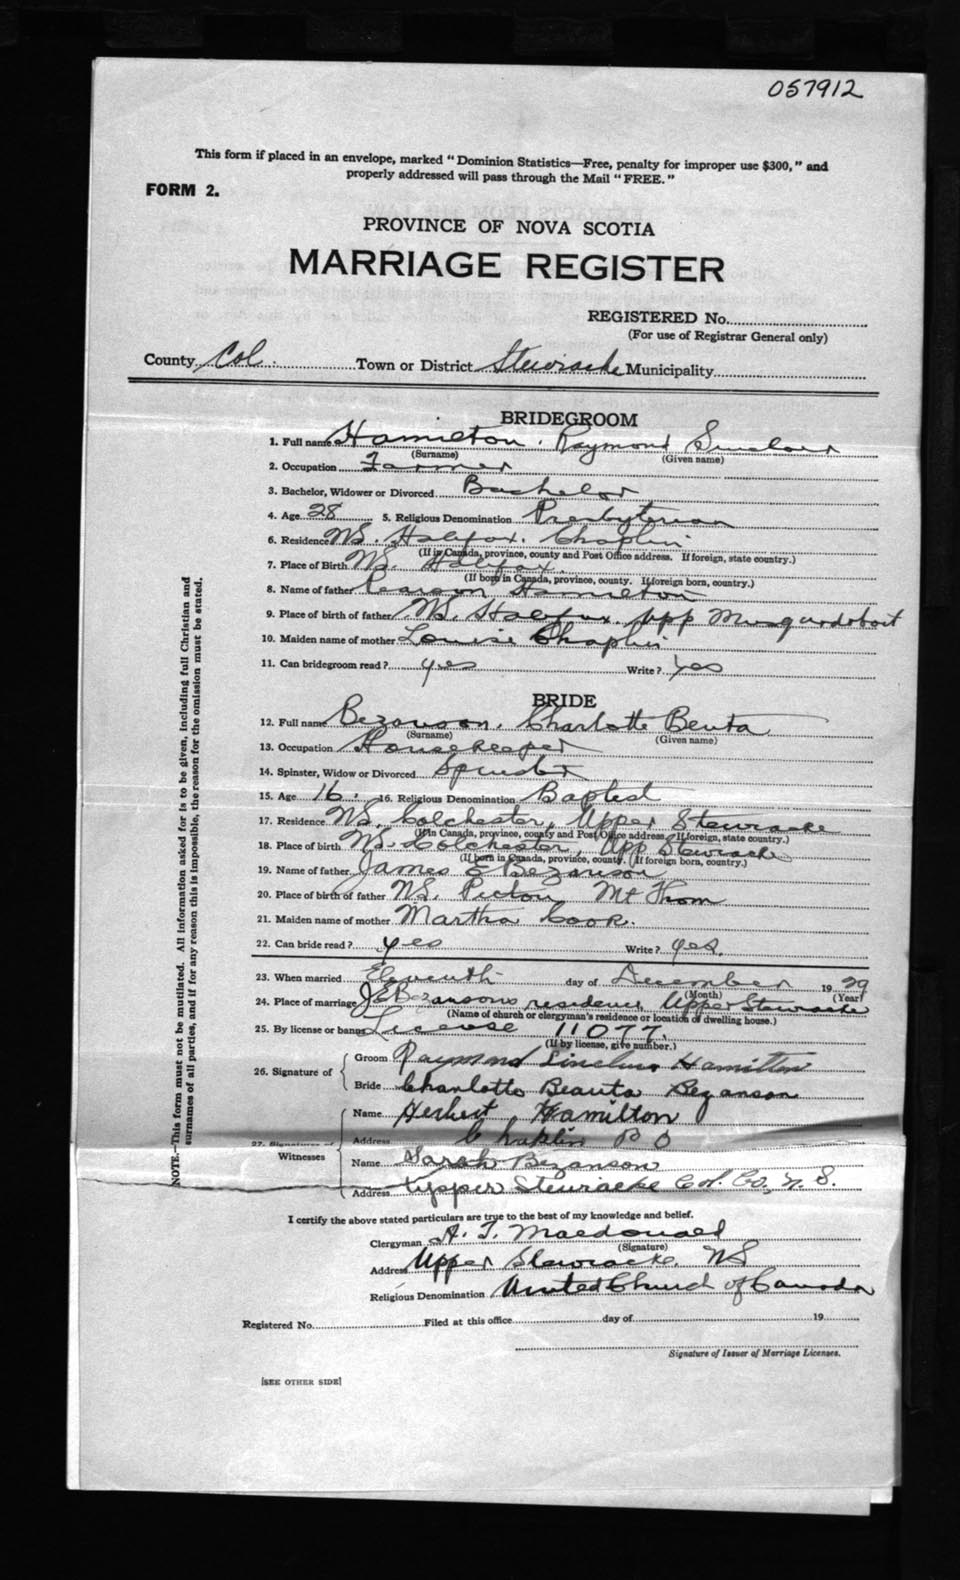 057912
This form if placed in an envelope, marked "Dominion Statistics—Free, penalty for improper use $300," and
properly addressed will pass through the Mail "FREE."
FORM 2.
PROVINCE OF NOVA SCOTIA
MARRIAGE REGISTER
REGISTERED No.
(For use of Registrar General only)
County Col. Town or District Stewiacke Municipality
BRIDEGROOM
1. Full name Hamilton. Raymond Sinclair
(Surname) (Given name)
2. Occupation Farmer
3. Bachelor, Widower or Divorced Bachelor
4. Age 28 5. Religious Denomination Presbyterian
6. Residence NS. Halifax. Chaplin
(If in Canada, province, county and Post Office address. If foreign, state country.)
7. Place of Birth NS. Halifax.
(If born in Canada, province, county. If foreign born, country.)
8. Name of father Pearson Hamilton
9. Place of birth of father NS. Halifax. Upp Musquodoboit
10. Maiden name of mother Louise Chaplin
11. Can bridegroom read? yes Write? yes
BRIDE
12. Full name Bezanson. Charlotte Beuta
(Surname) (Given name)
13. Occupation Housekeeper
14. Spinster, Widow or Divorced Spinster
15. Age 16. 16. Religious Denomination Baptist
17. Residence NS. Colchester, Upper Stewiacke
(If in Canada, province, county and Post Office address. If foreign, state country.)
18. Place of birth NS. Colchester, Upp Stewiacke
(If born in Canada, province, county. If foreign born, country.)
19. Name of father James E Bezanson
20. Place of birth of father NS. Pictou Mt Thom
21. Maiden name of mother Martha Cook.
22. Can bride read? yes Write? yes.
23. When married Eleventh day of December 1929
(Month) (Year)
24. Place of marriage J E Bezansons residence, Upper Stewiacke
(Name of church or clergyman's residence or location of dwelling house.)
25. By license or banns License 11077.
(If by license, give number.)
26. Signature of
Groom Raymond Sinclair Hamilton
Bride Charlotte Beauta Bezanson
27. Signatures of
Witnesses
Name Herbert Hamilton
Address Chaplin P O
Name Sarah Bezanson
Address Upper Stewiacke Col. Co., N. S.
NOTE.—This form must not be mutilated. All information asked for is to be given, including full Christian and
surnames of all parties, and if for any reason this is impossible, the reason for the omission must be stated.
I certify the above stated particulars are true to the best of my knowledge and belief.
Clergyman A. T. Macdonald
(Signature)
Address Upper Stewiacke. NS
Religious Denomination United Church of Canada
Registered No. Filed at this office day of 19
Signature of Issuer of Marriage Licenses.
[SEE OTHER SIDE]